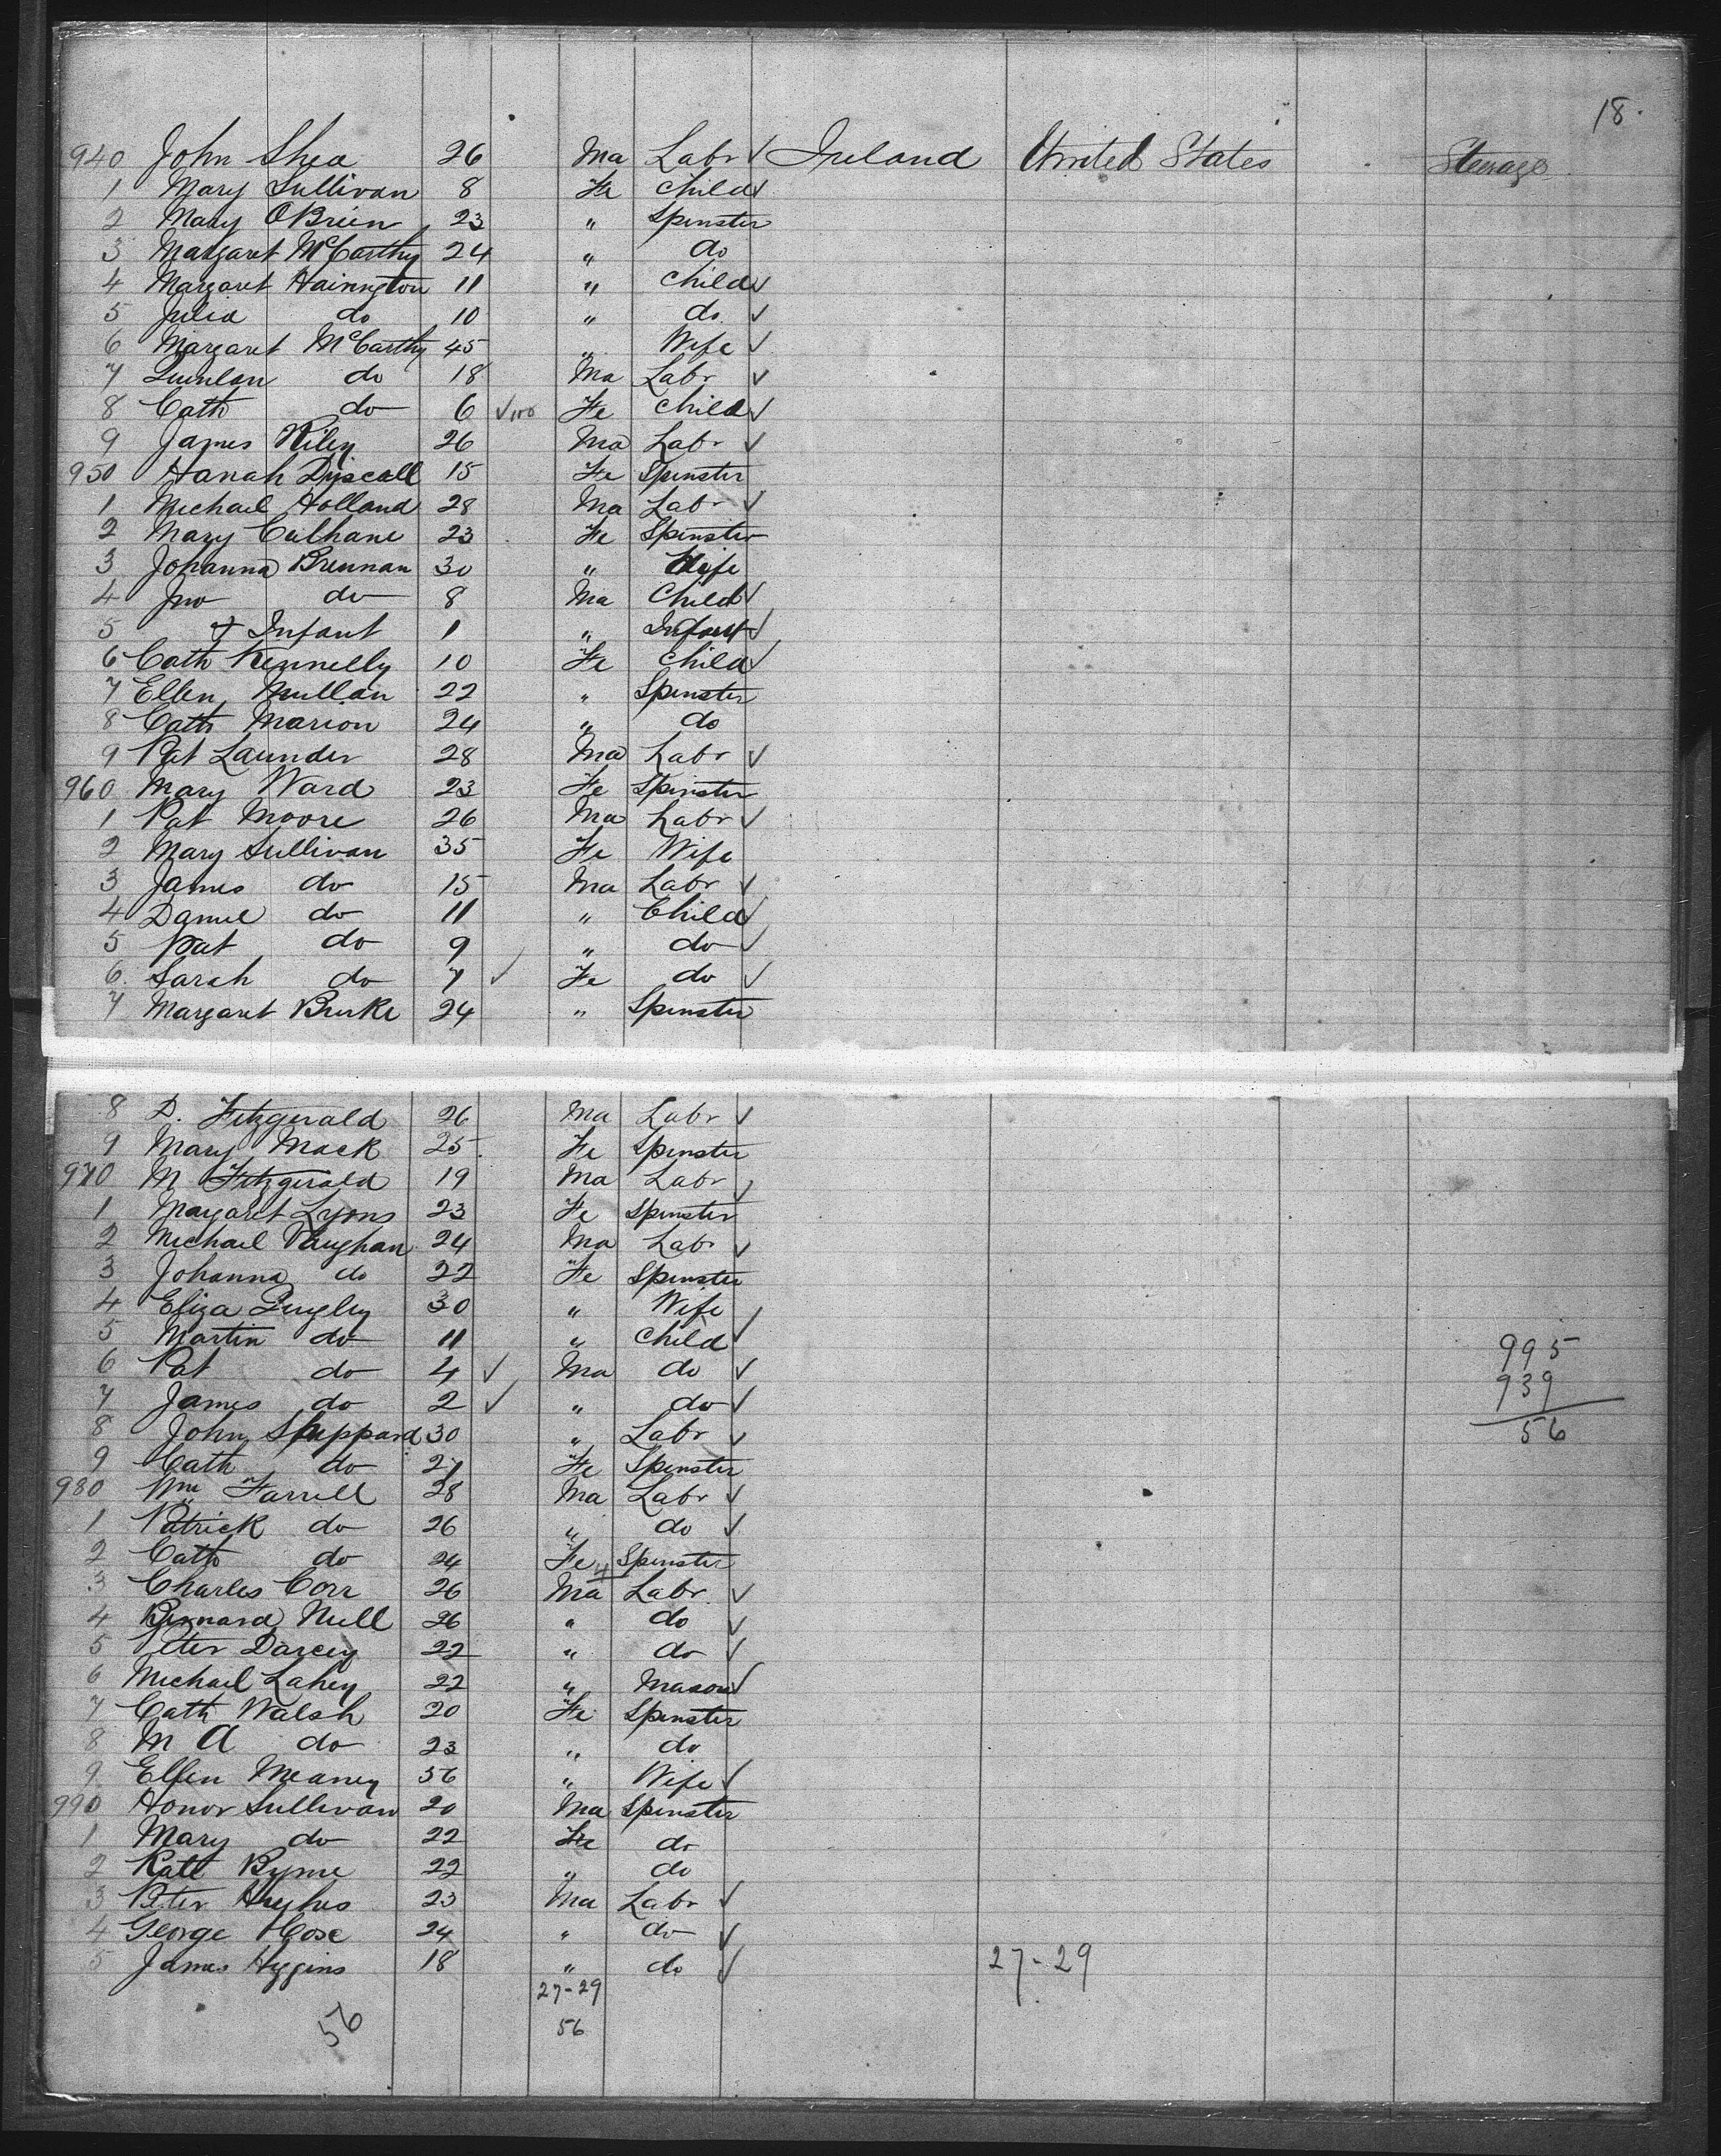 18.
940 John Shea 26 Ma Labr ✓ Ireland United States Steerage
1 Mary Sullivan 8 Fe Child ✓
2 Mary OBrien 23 " Spinster
3 Margaret McCarthy 24 " do
4 Margaret Harrington 11 " Child ✓
5 Julia do 10 " do ✓
6 Margaret McCarthy 45 " Wife ✓
7 Quinlan do 18 Ma Labr ✓
8 Cath do 6 ✓ Fe Child ✓
9 James Riley 26 Ma Labr ✓
950 Hanah Driscoll 15 Fe Spinster
1 Michael Holland 28 Ma Labr ✓
2 Mary Culhane 23 Fe Spinster
3 Johanna Brennan 30 " Wife
4 Jno do 8 Ma Child ✓
5 & Infant 1 " Infant ✓
6 Cath Kennelly 10 Fe Child ✓
7 Ellen Mullan 22 " Spinster
8 Cath Marion 24 " do
9 Pat Launder 28 Ma Labr ✓
960 Mary Ward 23 Fe Spinster
1 Pat Moore 26 Ma Labr ✓
2 Mary Sullivan 35 Fe Wife
3 James do 15 Ma Labr ✓
4 Daniel do 11 " Child ✓
5 Pat do 9 " do ✓
6 Sarah do 7 ✓ Fe do ✓
7 Margaret Burke 24 " Spinster
8 D. Fitzgerald 26 Ma Labr ✓
9 Mary Mack 25 Fe Spinster
970 M Fitzgerald 19 Ma Labr ✓
1 Margaret Lyons 23 Fe Spinster
2 Michael Vaughan 24 Ma Labr ✓
3 Johanna do 22 Fe Spinster
4 Eliza Quigley 30 " Wife ✓
5 Martin do 11 " Child ✓
6 Pat do 4 ✓ Ma do ✓
7 James do 2 ✓ " do ✓
8 John Sheppard 30 " Labr ✓
9 Cath do 27 Fe Spinster
980 Wm Farrell 28 Ma Labr ✓
1 Patrick do 26 " do ✓
2 Cath do 24 Fe Spinster
3 Charles Corr 26 Ma Labr ✓
4 Bernard Neill 26 " do ✓
5 Peter Darcey 22 " do ✓
6 Michael Lahey 22 " Mason ✓
7 Cath Walsh 20 Fe Spinster
8 M A do 23 " do
9 Ellen Meaney 56 " Wife ✓
990 Honor Sullivan 20 Ma Spinster
1 Mary do 22 Fe do
2 Kate Byrne 22 " do
3 Peter Hughes 23 Ma Labr ✓
4 George Cose 24 " do ✓
5 James Higgins 18 " do ✓
995
939
56
27-29 27-29
56 56